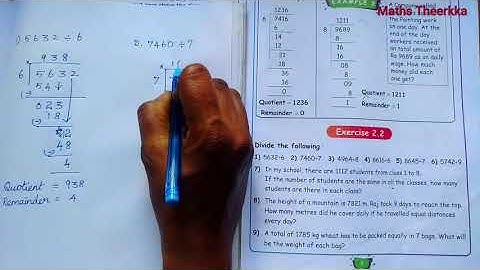 Maths Theerkka
1) 5632 ÷ 6
938
6 5632
54
023
18
52
48
4
Quotient = 938
Remainder = 4
2) 7460 ÷ 7
7
1236
6 7416
6
14
12
21
18
36
36
0
Quotient = 1236
Remainder = 0
1211
8 9689
8
16
16
08
8
9
8
1
Quotient = 1211
Remainder = 1
the Painting work
in a day. At the
end of the day
workers received
an total amount of
Rs 9689 as an daily
wage. How much
money did each
one get?
Exercise 2.2
Divide the following
1) 5632÷6 2) 7460÷7 3) 4964÷8 4) 6616÷6 5) 8645÷7 6) 5742÷9
7) In my school, there are 1112 students from class 1 to 8.
If the number of students are the same in all the classes, how many
students are there in each class?
8) The height of a mountain is 7821 m. Raj took 9 days to reach the top.
How many metres did he cover daily if he travelled equal distances
every day?
9) A total of 1785 kg wheat has to be packed equally in 7 bags. What will
be the weight of each bag?